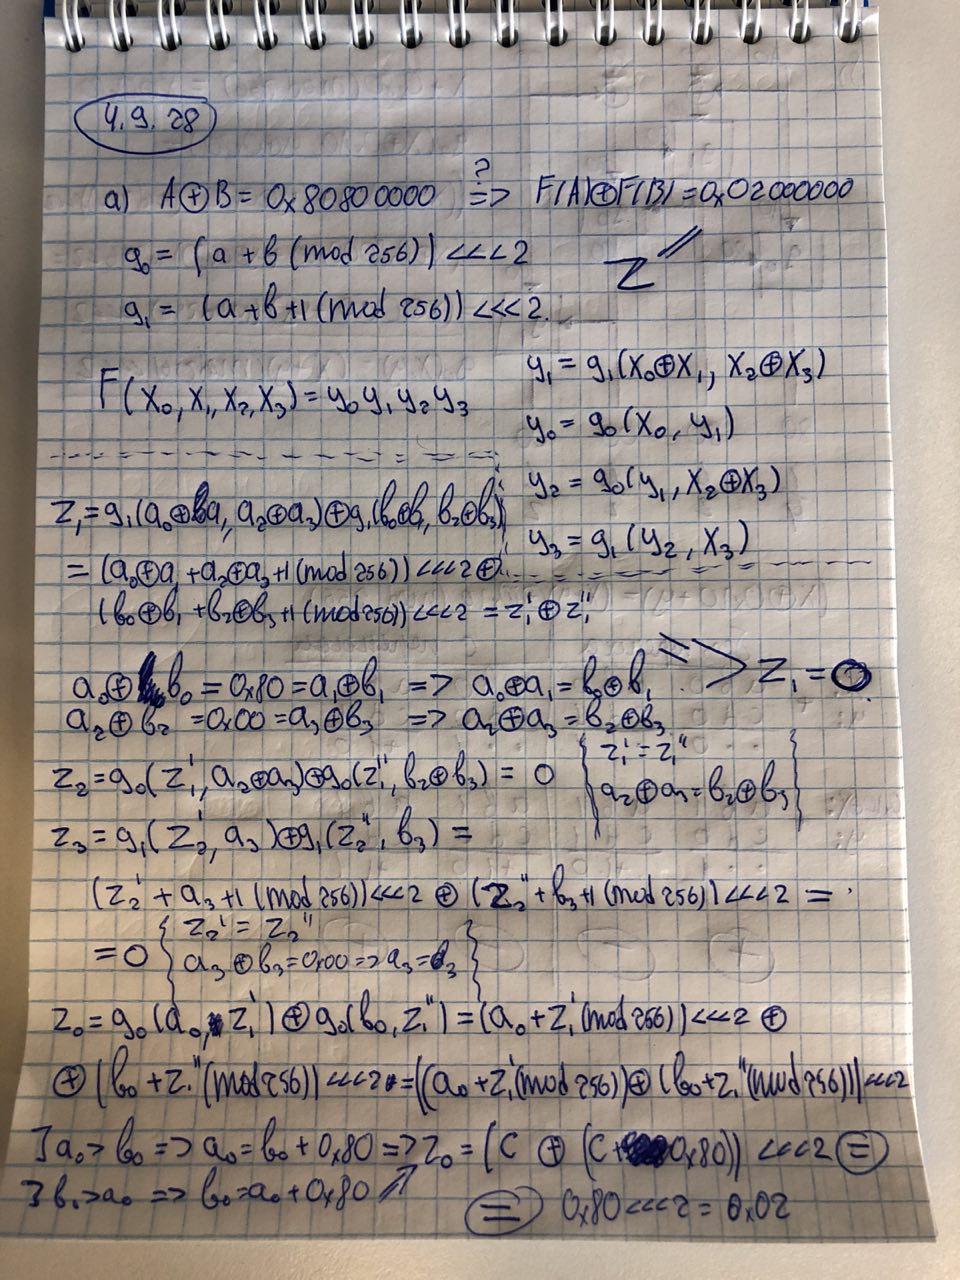 4.9.28
a) A⊕B = 0x80800000 ?=> F(A)⊕F(B) = 0x02000000
g₀ = (a + b (mod 256)) <<< 2
Z
g₁ = (a + b + 1 (mod 256)) <<< 2.
F(X₀, X₁, X₂, X₃) = y₀ y₁ y₂ y₃
y₁ = g₁(X₀⊕X₁, X₂⊕X₃)
y₀ = g₀(X₀, y₁)
y₂ = g₀(y₁, X₂⊕X₃)
y₃ = g₁(y₂, X₃)
z₁ = g₁(a₀⊕a₁, a₂⊕a₃)⊕g₁(b₀⊕b₁, b₂⊕b₃)
= (a₀⊕a₁ + a₂⊕a₃ + 1 (mod 256)) <<< 2 ⊕
(b₀⊕b₁ + b₂⊕b₃ + 1 (mod 256)) <<< 2 = z₁' ⊕ z₁''
a₀⊕b₀ = 0x80 = a₁⊕b₁ => a₀⊕a₁ = b₀⊕b₁ => z₁ = 0
a₂⊕b₂ = 0x00 = a₃⊕b₃ => a₂⊕a₃ = b₂⊕b₃
z₂ = g₀(z₁', a₂⊕a₃)⊕g₀(z₁'', b₂⊕b₃) = 0 { z₁' = z₁''
a₂⊕a₃ = b₂⊕b₃ }
z₃ = g₁(z₂', a₃)⊕g₁(z₂'', b₃) =
(z₂' + a₃ + 1 (mod 256)) <<< 2 ⊕ (z₂'' + b₃ + 1 (mod 256)) <<< 2 =
= 0 { z₂' = z₂''
a₃⊕b₃ = 0x00 => a₃ = b₃ }
z₀ = g₀(a₀, z₁') ⊕ g₀(b₀, z₁'') = (a₀ + z₁' (mod 256)) <<< 2 ⊕
⊕ (b₀ + z₁'' (mod 256)) <<< 2 = ((a₀ + z₁' (mod 256)) ⊕ (b₀ + z₁'' (mod 256))) <<< 2
] a₀ > b₀ => a₀ = b₀ + 0x80 => z₀ = (C ⊕ (C + 0x80)) <<< 2 =
] b₀ > a₀ => b₀ = a₀ + 0x80
= 0x80 <<< 2 = 0x02